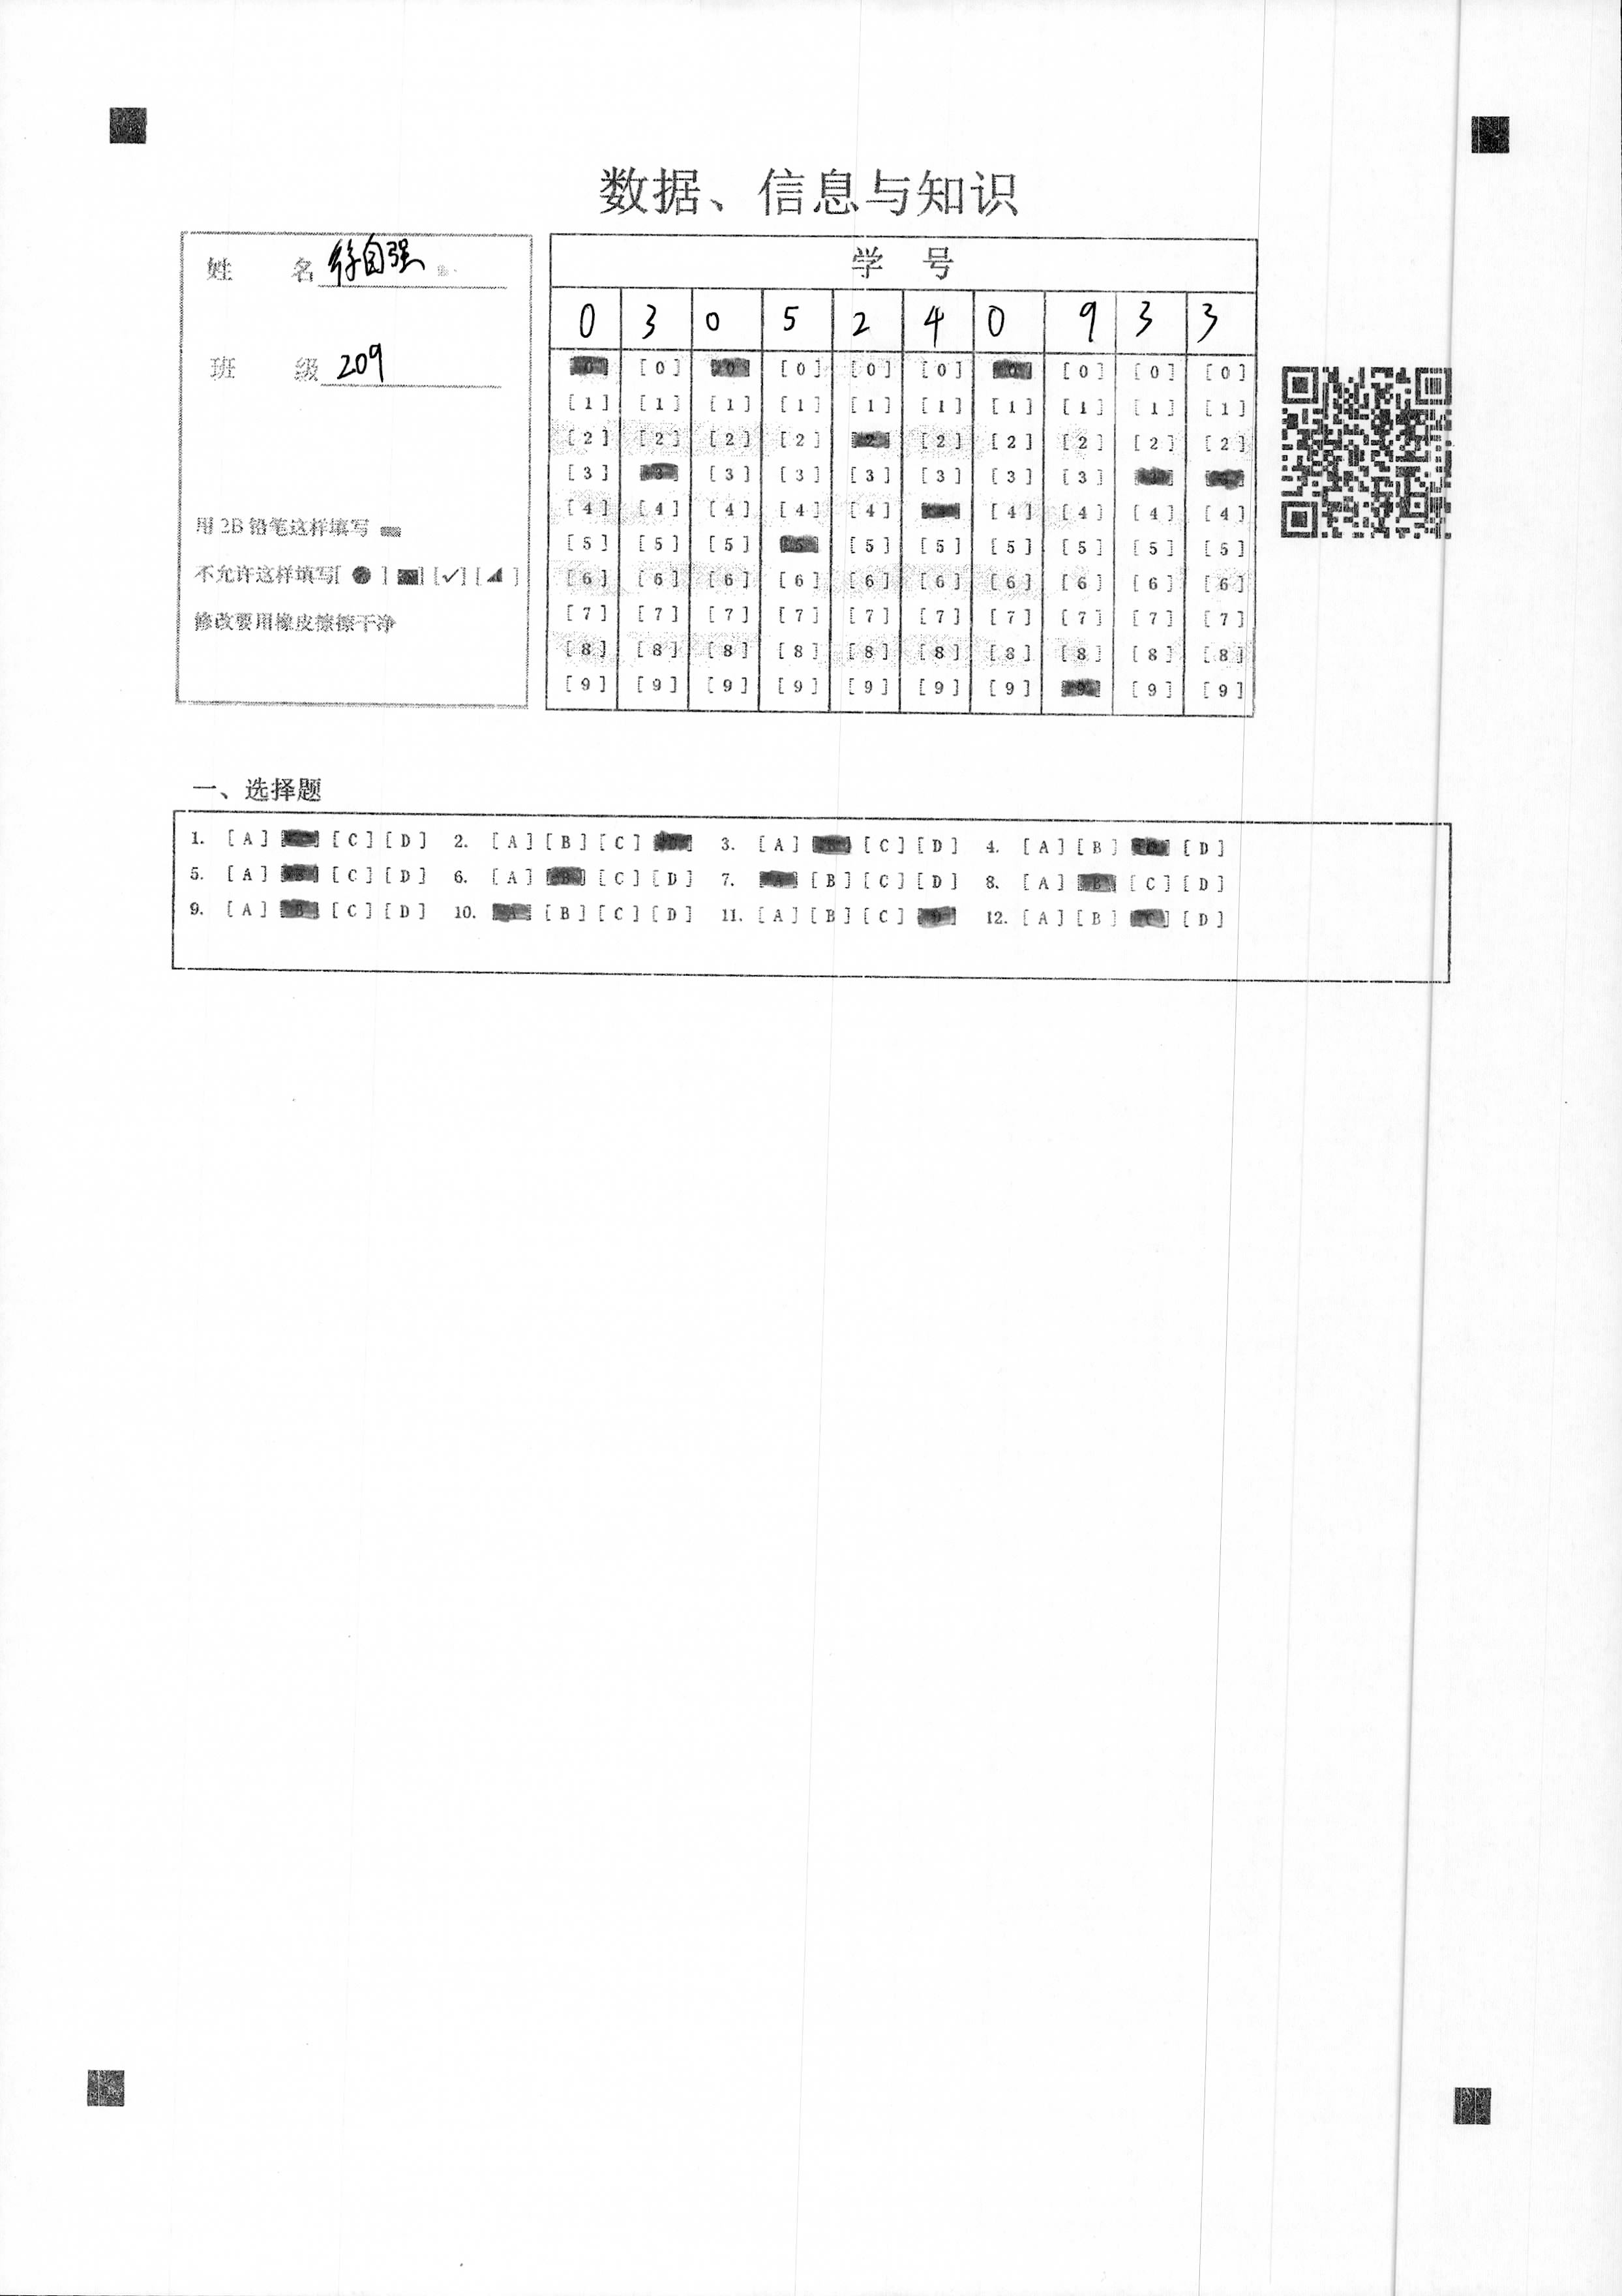 数据、信息与知识
姓 名 徐自强
班 级 209
用 2B 铅笔这样填写
不允许这样填写[ ● ] [■] [✓] [◢ ]
修改要用橡皮擦擦干净
学 号
0 3 0 5 2 4 0 9 3 3
[0] [0] [0] [0] [0] [0] [0] [0] [0] [0]
[1] [1] [1] [1] [1] [1] [1] [1] [1] [1]
[2] [2] [2] [2] [2] [2] [2] [2] [2] [2]
[3] [3] [3] [3] [3] [3] [3] [3] [3] [3]
[4] [4] [4] [4] [4] [4] [4] [4] [4] [4]
[5] [5] [5] [5] [5] [5] [5] [5] [5] [5]
[6] [6] [6] [6] [6] [6] [6] [6] [6] [6]
[7] [7] [7] [7] [7] [7] [7] [7] [7] [7]
[8] [8] [8] [8] [8] [8] [8] [8] [8] [8]
[9] [9] [9] [9] [9] [9] [9] [9] [9] [9]
一、选择题
1. [A] [B] [C] [D] 2. [A] [B] [C] [D] 3. [A] [B] [C] [D] 4. [A] [B] [C] [D]
5. [A] [B] [C] [D] 6. [A] [B] [C] [D] 7. [A] [B] [C] [D] 8. [A] [B] [C] [D]
9. [A] [B] [C] [D] 10. [A] [B] [C] [D] 11. [A] [B] [C] [D] 12. [A] [B] [C] [D]